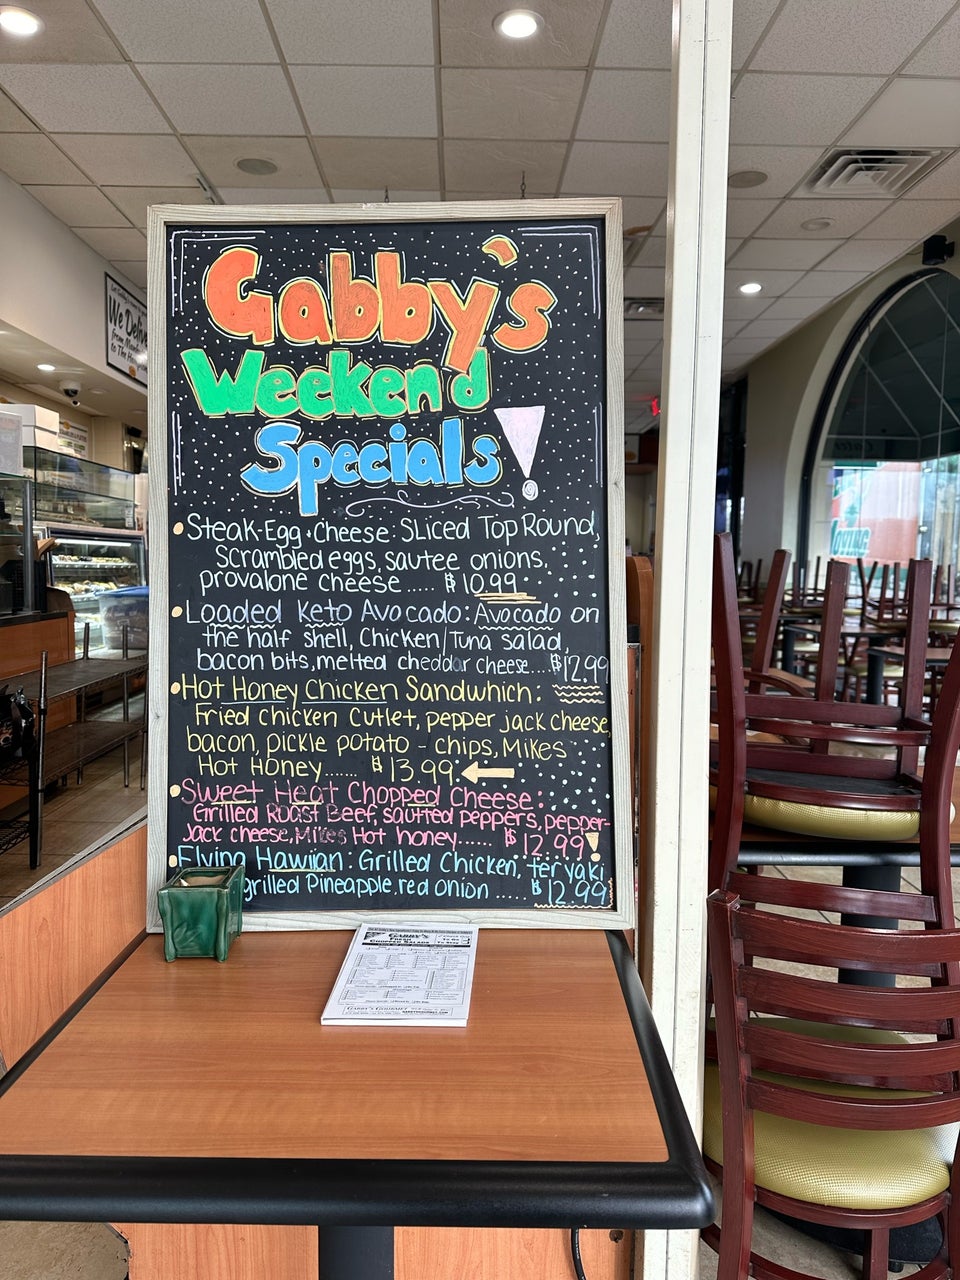 Gabby's
Weekend
Specials!
We Deliver
• Steak-Egg+Cheese: Sliced Top Round,
Scrambled eggs, sautee onions,
provalone cheese..... $10.99
• Loaded Keto Avocado: Avocado on
the half shell, Chicken/Tuna salad,
bacon bits, melted cheddar cheese....$12.99
• Hot Honey Chicken Sandwhich:
Fried Chicken Cutlet, pepper jack cheese,
bacon, pickle potato - chips, Mikes
Hot Honey...... $13.99
• Sweet Heat Chopped Cheese:
Grilled Roast Beef, sautted peppers, pepper-
Jack cheese, Mikes Hot honey...... $12.99!
• Flying Hawiian: Grilled Chicken, teryaki
grilled Pineapple, red onion ..... $12.99
GABBY'S
FRESH
CHOPPED SALADS
GABBY'S GOURMET